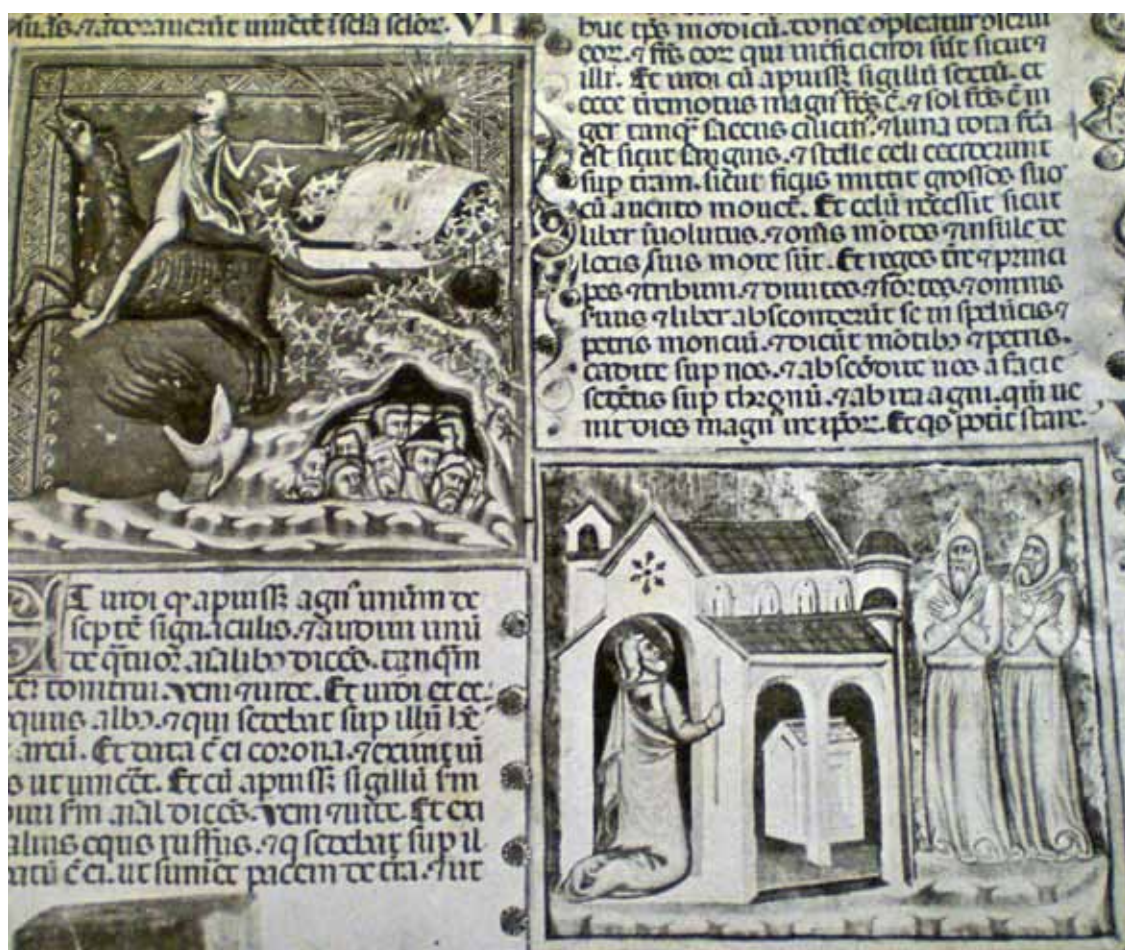 7 adorauerūt uiuētē ī scła scłor. VI
ET uidi ꝙ apuiss; agn' unum de
septē signaculis. 7 audiui unū
de q̄tuor aīalib' dicēs. tanq̄m
tonitrui. veni 7 uide. Et uidi et ec
equus alb'. 7 qui sedebat sup illū hē
arcū. Et data ē ei corona. 7 exiuit ui
s ut uincēt. Et cū apuiss; sigillū sm̄
iui sm̄ aīal dicēs. veni 7 uide. Et exi
alius equus ruffus. 7 q sedebat sup il
atū ē ei. ut sumēt pacem de tra. 7 ut
buc tp̄s modicū. donec īpleātur
cor. 7 fr̄s eor qui īterficiendi sūt sicut 7
illi. Et uidi cū apuiss; sigillū sextū. et
ecce tremotus magn' fc̄s ē. 7 sol fc̄s ē ni
ger tanq̄ saccus cilicin'. 7 luna tota fc̄a
est sicut sanguis. 7 stelle celi ceciderunt
sup tram. sicut ficus mittit grossos suo
cū a uento mouet. Et celū recessit sicut
liber īuolutus. 7 om̄is mōtes 7 insule de
locis suis mote sūt. Et reges tre 7 princi
pes 7 tribuni. 7 diuites 7 fortes. 7 omnis
seruus 7 liber absconderūt se in spelūcis 7
petris monciū. 7 dicūt mōtib' 7 petris.
cadite sup nos. 7 abscōdite nos a facie
sedētis sup thronū. 7 ab ira agni. qm̄ ue
nit dies magn' ire ipor. Et q̄s poterit stare.